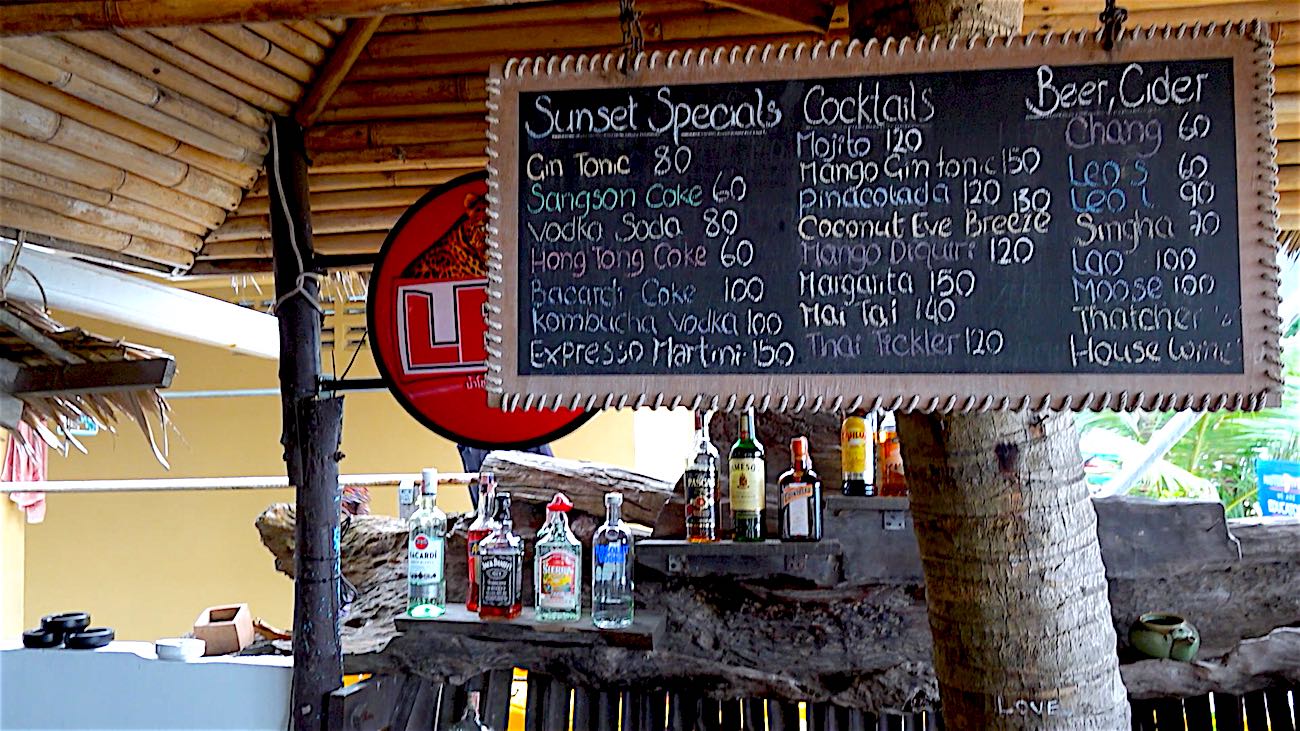 Sunset Specials
Gin Tonic 80
Sangson Coke 60
Vodka Soda 80
Hong Tong Coke 60
Bacardi Coke 100
Kombucha Vodka 100
Expresso Martini 150
Cocktails
Mojito 120
Mango Gin tonic 150
Pinacolada 120
Coconut Eve Breeze 130
Mango Diquiri 120
Margarita 150
Mai Tai 140
Thai Tickler 120
Beer, Cider
Chang 60
Leo s 60
Leo L 90
Singha 70
Lao 100
Moose 100
Thatcher's
House wine
LE
BACARDI
JACK DANIEL'S
SIERRA
ABSOLUT
JAMESON
COINTREAU
LOVE